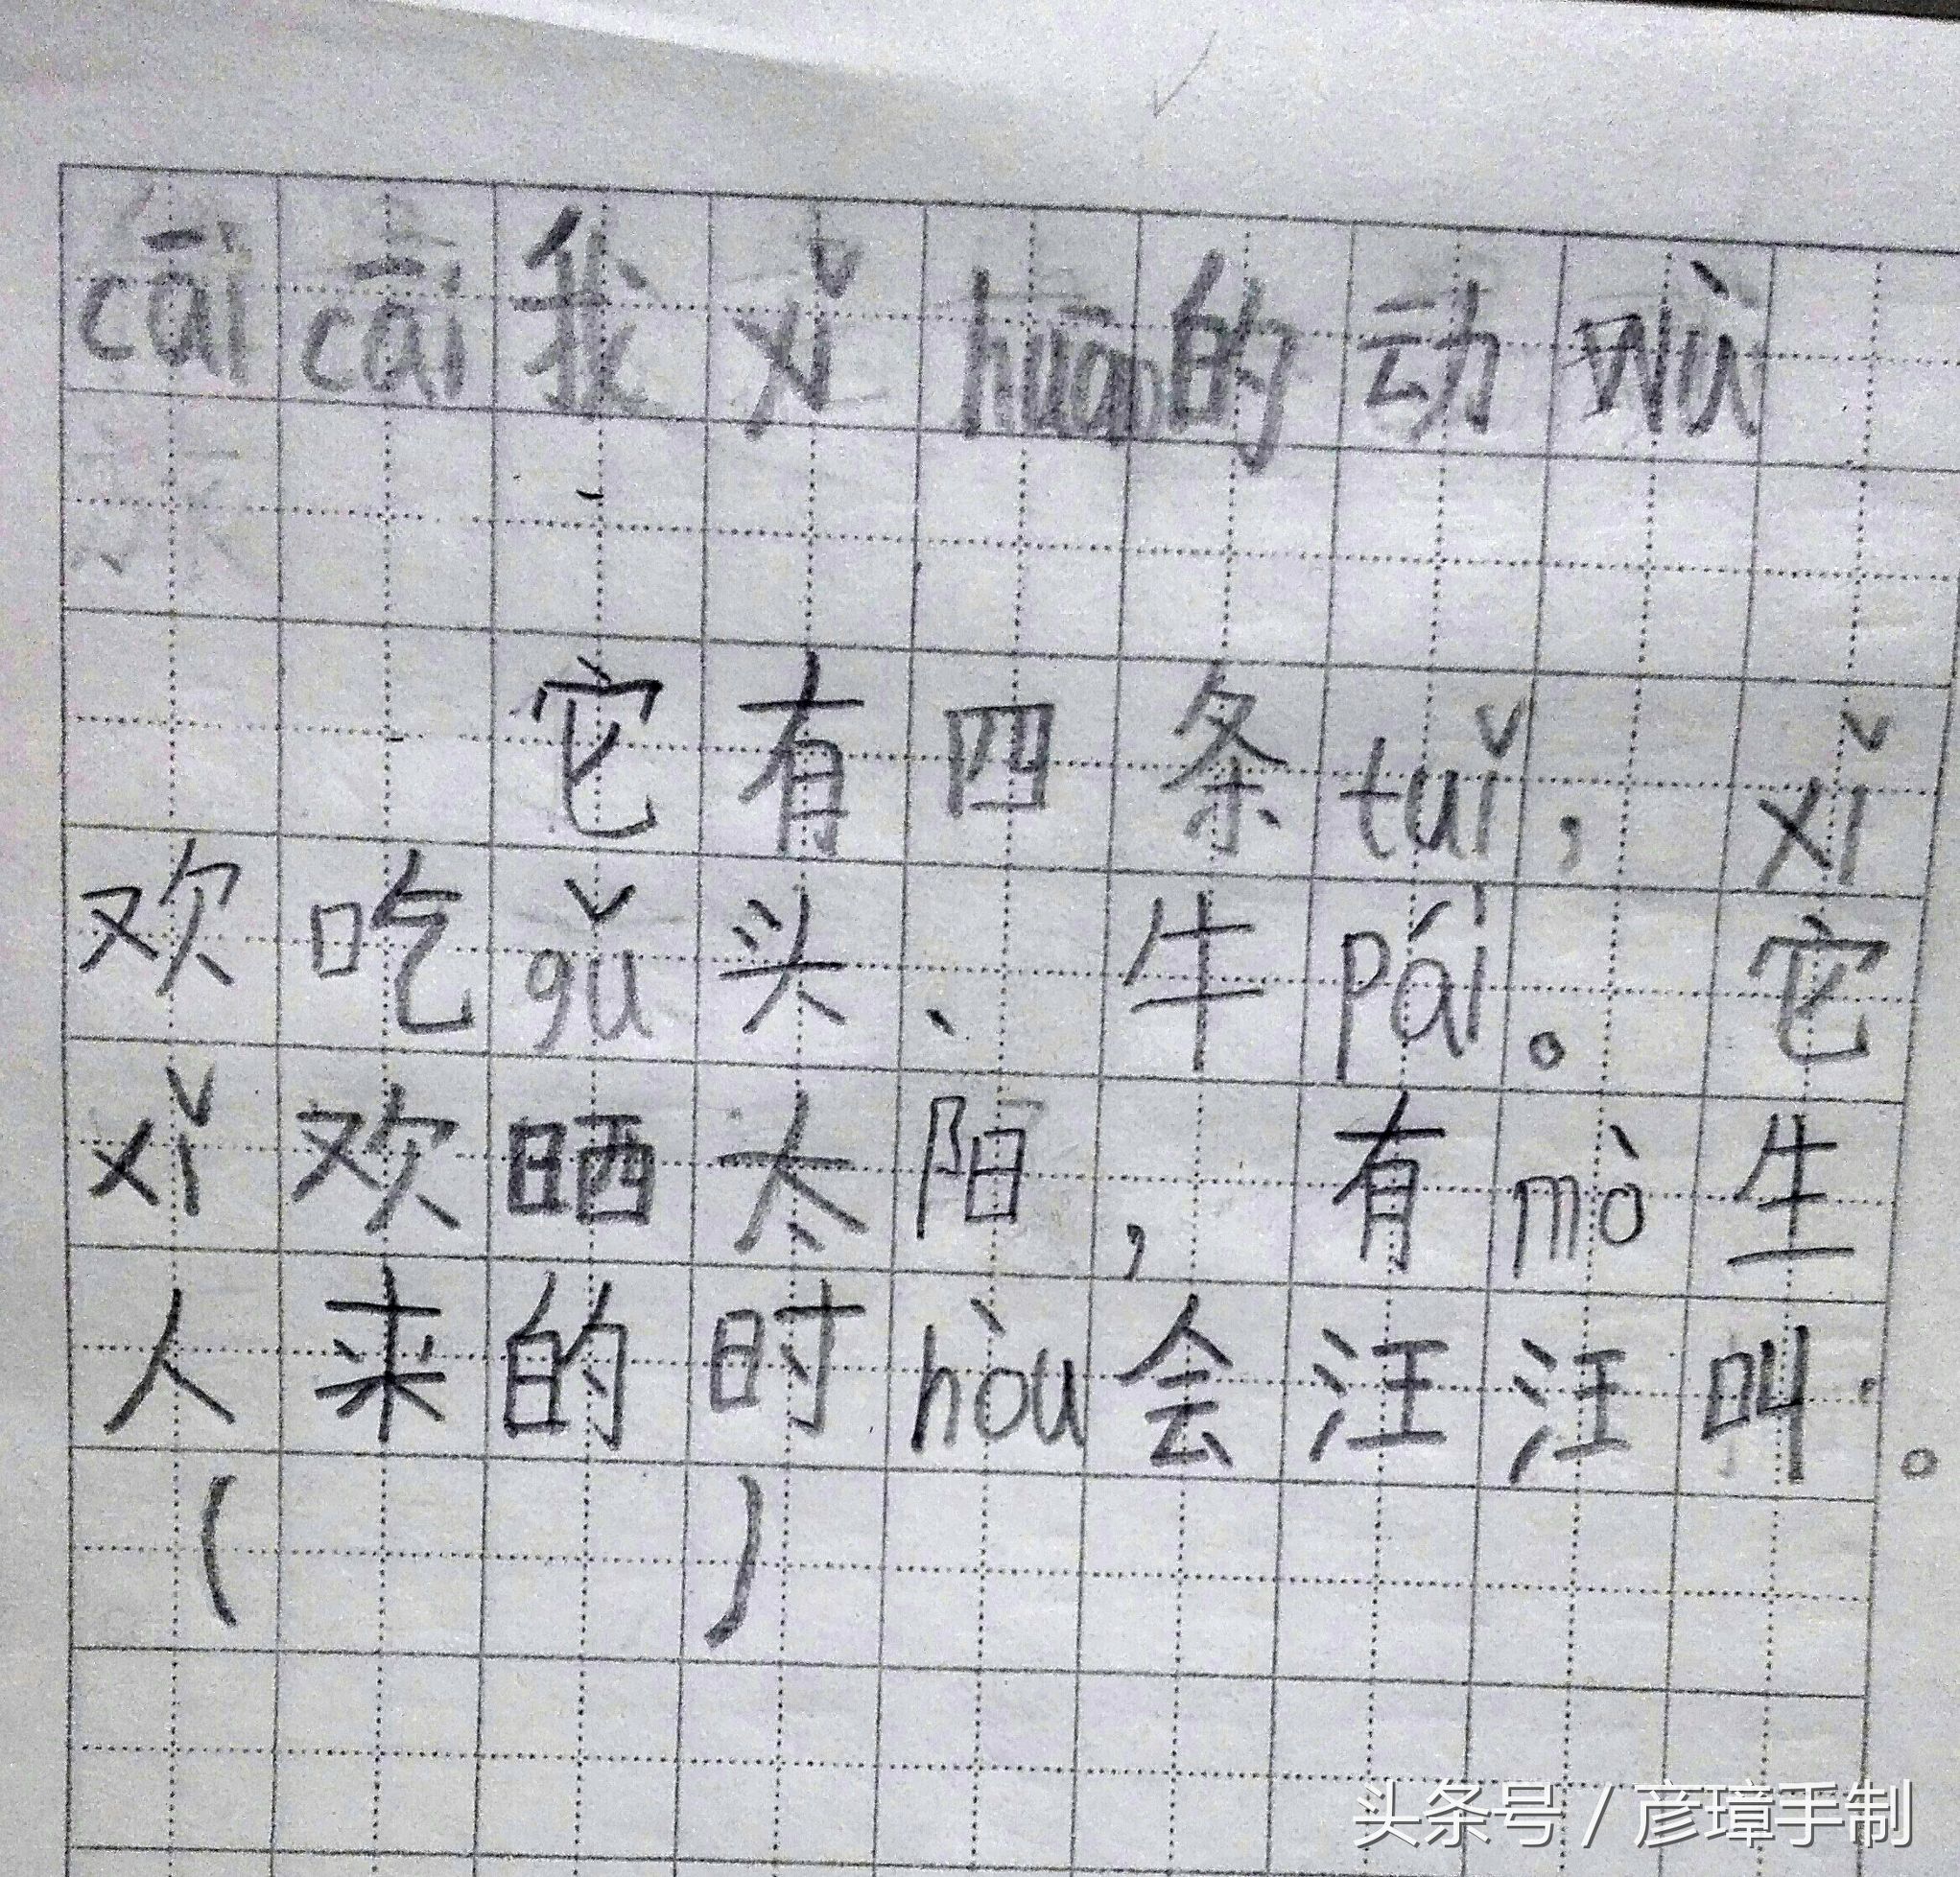 cāi cāi 我 xǐ huān 的动 wù
它有四条 tuǐ，xǐ
欢吃 gǔ 头、牛 pái。它
xǐ 欢晒太阳，有 mò 生
人来的时 hòu 会汪汪叫。
（ ）
头条号 / 彦璋手制